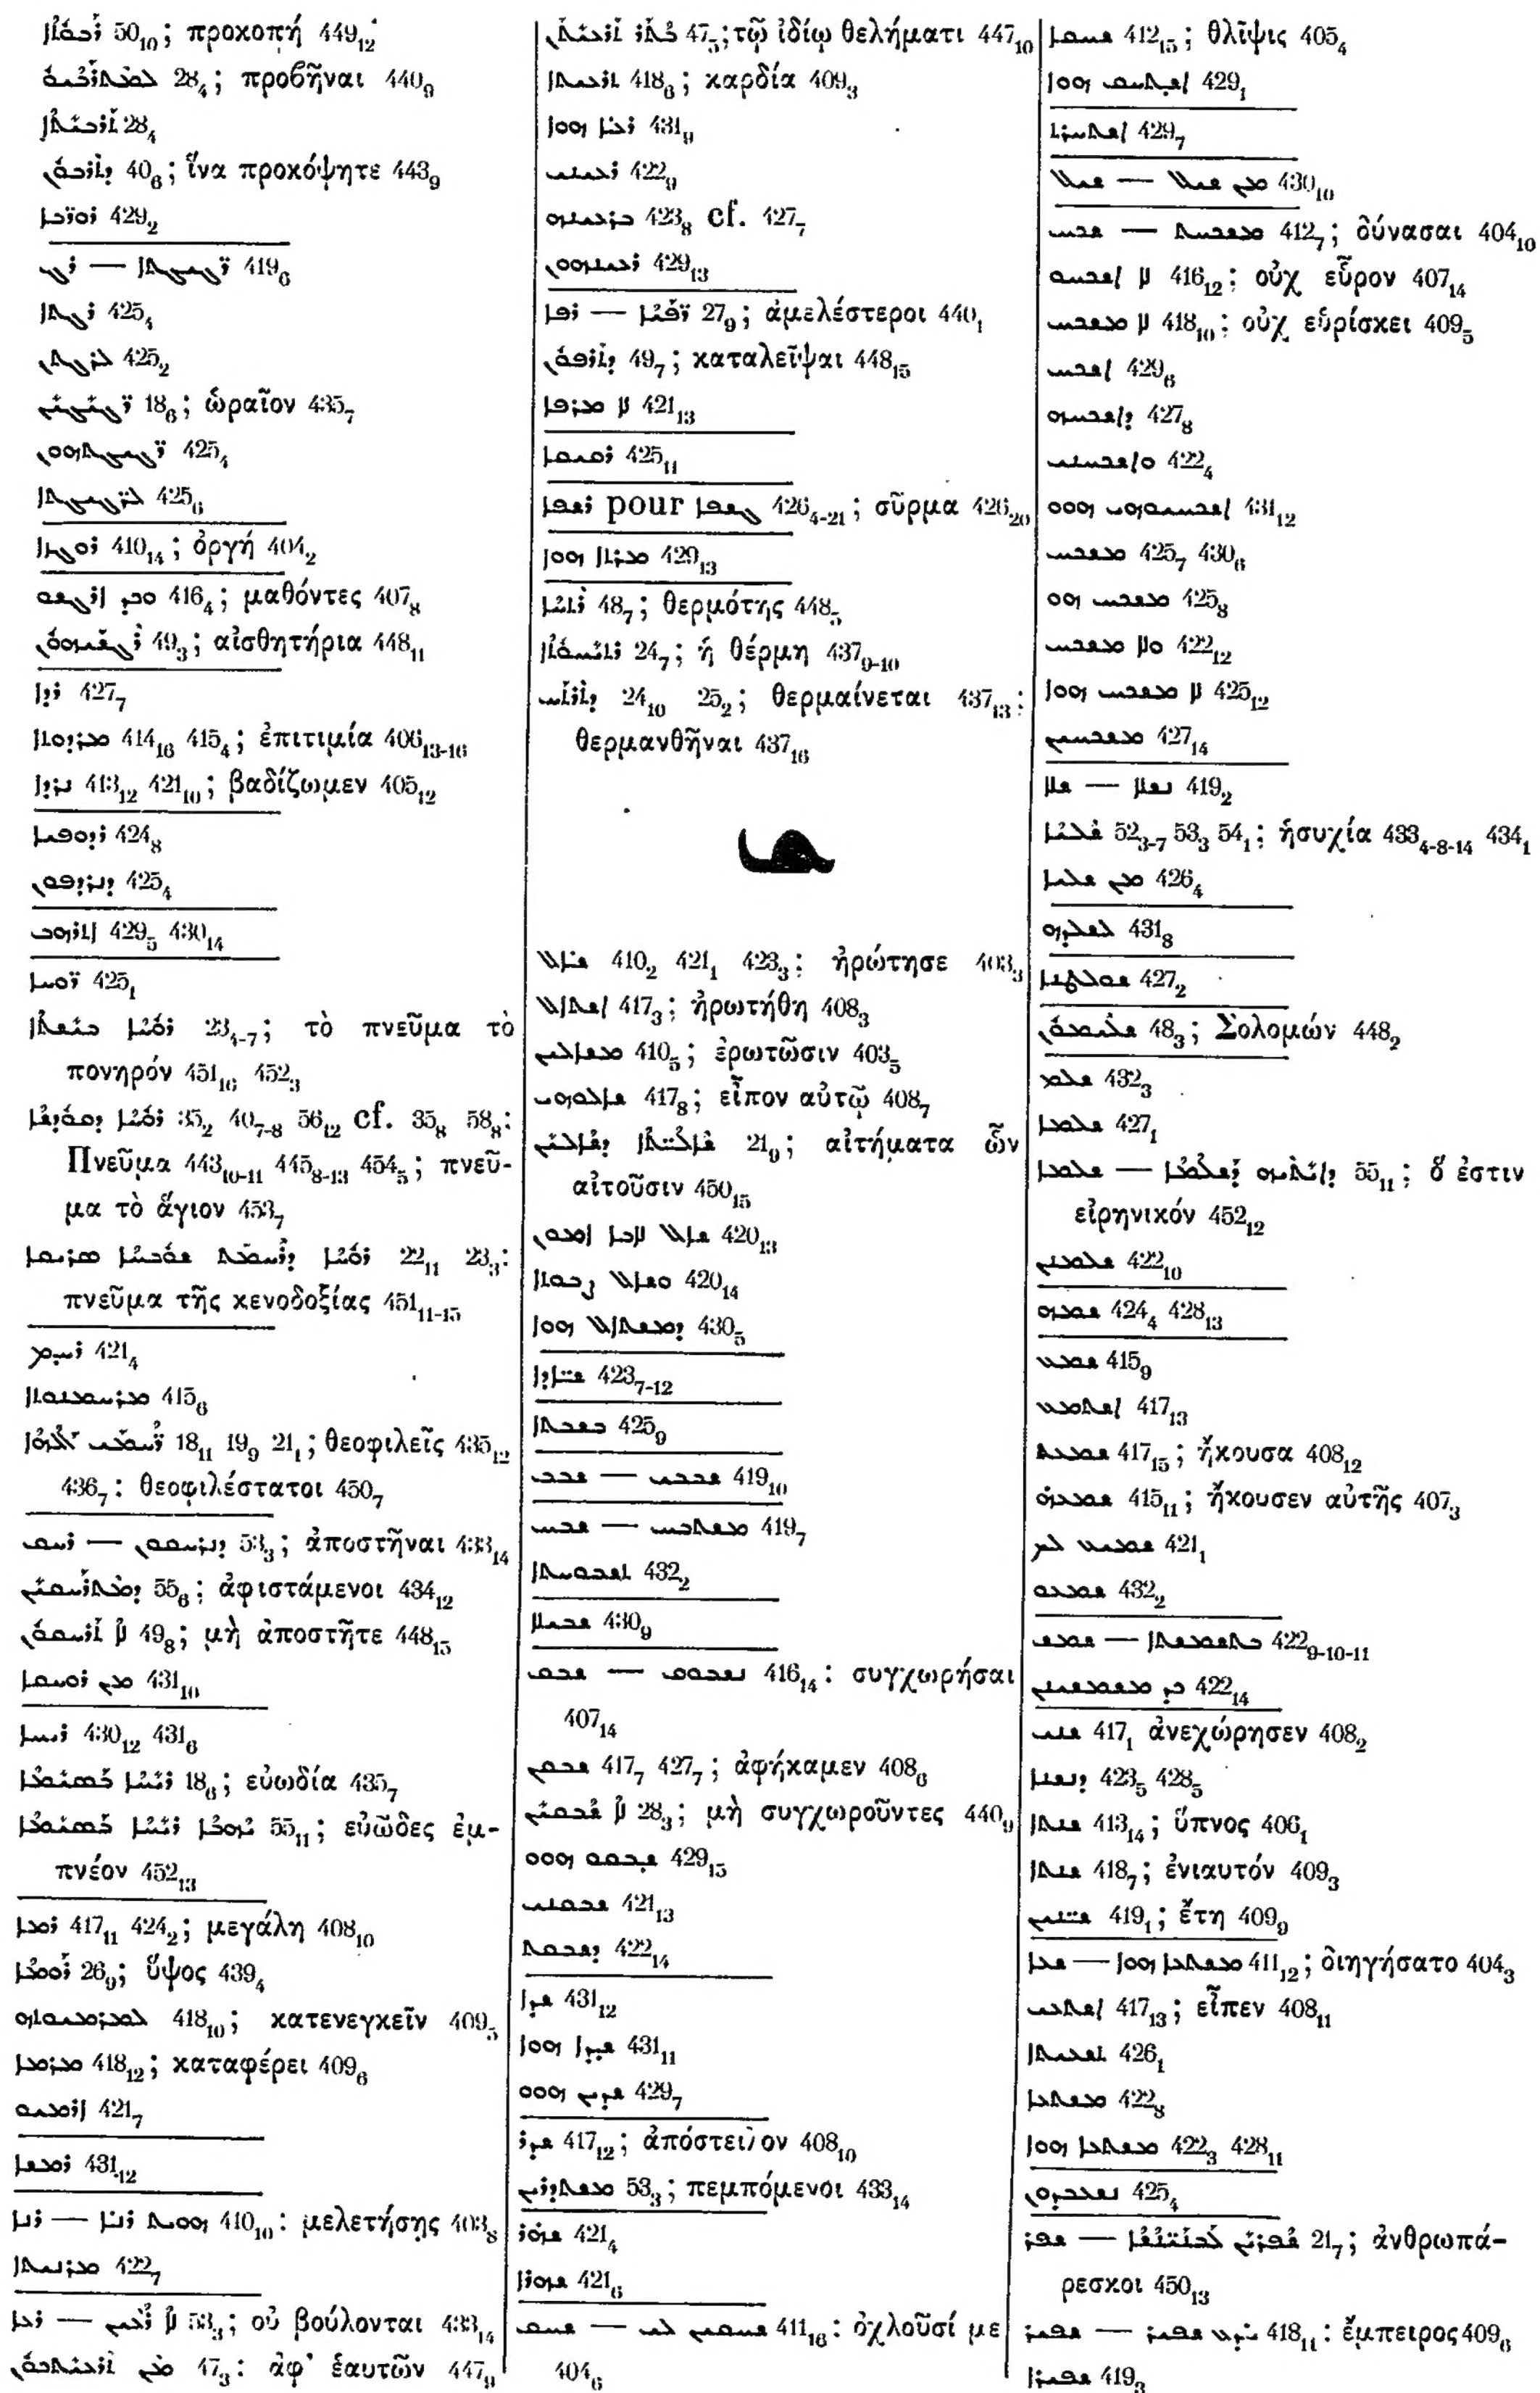 ܪܒܘܬܐ 50₁₀; προκοπή 449₁₂
28₄; προβῆναι 440₉
ܬܪܒܝܬܐ 28₄
ܕܬܪܒܘܢ 40₆; ἵνα προκόψητε 443₉
ܪܘܪܒܐ 429₂
ܪܓ — ܪܓܝܓܬܐ 419₆
ܪܓܬܐ 425₄
ܠܪܓܬܢ 425₂
ܪܓܝܓܝܢ 18₆; ὡραῖον 435₇
ܪܓܝܓܬܗܘܢ 425₄
ܠܪܓܝܓܬܐ 425₆
ܪܘܓܙܐ 410₁₄; ὀργή 404₂
ܘܟܕ ܐܪܓܫܘ 416₄; μαθόντες 407₈
ܪܓܫܝܗܘܢ 49₃; αἰσθητήρια 448₁₁
ܪܕܐ 427₇
ܡܪܕܘܬܐ 414₁₆ 415₄; ἐπιτιμία 406₁₃₋₁₆
ܢܪܕܐ 413₁₂ 421₁₀; βαδίζωμεν 405₁₂
ܪܕܘܦܝܐ 424₈
ܕܢܪܕܦܘܢ 425₄
ܐܬܪܗܒ 429₅ 430₁₄
ܪܘܚܐ 425₁
ܪܘܚܐ ܒܝܫܬܐ 23₄₋₇; τὸ πνεῦμα τὸ
πονηρόν 451₁₆ 452₃
ܪܘܚܐ ܕܩܘܕܫܐ 35₂ 40₇₋₈ 56₁₂ cf. 35₈ 58₈:
Πνεῦμα 443₁₀₋₁₁ 445₈₋₁₃ 454₅; πνεῦ-
μα τὸ ἅγιον 453₇
ܪܘܚܐ ܕܪܚܡܬ ܫܘܒܚܐ ܣܪܝܩܐ 22₁₁ 23₃:
πνεῦμα τῆς κενοδοξίας 451₁₁₋₁₅
421₄
ܡܪܚܡܢܘܬܐ 415₆
ܪܚܡܝ ܐܠܗܐ 18₁₁ 19₉ 21₁; θεοφιλεῖς 435₁₂
436₇: θεοφιλέστατοι 450₇
ܪܚܩ — ܕܢܪܚܩܘܢ 53₃; ἀποστῆναι 433₁₄
ܕܡܬܪܚܩܝܢ 55₆; ἀφιστάμενοι 434₁₂
ܠܐ ܬܪܚܩܘܢ 49₈; μὴ ἀποστῆτε 448₁₅
ܡܢ ܪܘܚܩܐ 431₁₀
ܪܝܚܐ 430₁₂ 431₆
ܪܝܚܐ ܒܣܝܡܐ 18₆; εὐωδία 435₇
ܝܗܒܐ ܪܝܚܐ ܒܣܝܡܐ 55₁₁; εὐῶδες ἐμ-
πνέον 452₁₃
ܪܡܐ 417₁₁ 424₂; μεγάλη 408₁₀
ܪܘܡܐ 26₉; ὕψος 439₄
ܠܡܪܡܝܘܬܗ 418₁₀; κατενεγκεῖν 409₅
ܡܪܡܐ 418₁₂; καταφέρει 409₆
ܐܪܡܝܘ 421₇
ܪܡܫܐ 431₁₂
ܪܢܐ — ܗܘܝܬ ܪܢܐ 410₁₀: μελετήσης 403₈
ܡܪܢܝܬܐ 422₇
ܪܥܐ — ܠܐ ܪܥܝܢ 53₃; οὐ βούλονται 433₁₄
ܡܢ ܬܪܥܝܬܟܘܢ 47₃: ἀφ' ἑαυτῶν 447₉
ܒܬܪ ܬܪܥܝܬܢ 47₅; τῷ ἰδίῳ θελήματι 447₁₀
ܬܪܥܝܬܐ 418₆; καρδία 409₃
ܪܥܐ ܗܘܐ 431₉
ܪܥܝܢܝ 422₉
ܒܪܥܝܢܗ 423₈ cf. 427₇
ܪܥܝܢܗܘܢ 429₁₃
ܪܦܐ — ܪܦܝܐ 27₉; ἀμελέστεροι 440₁
ܕܬܪܦܘܢ 49₇; καταλεῖψαι 448₁₅
ܠܐ ܡܪܦܐ 421₁₃
ܪܩܝܩܐ 425₁₁
ܪܫܦܐ pour ܓܫܦܐ 426₄₋₂₁; σῦρμα 426₂₀
ܡܪܬܐ ܗܘܐ 429₁₃
ܪܬܚܐ 48₇; θερμότης 448₅
ܪܬܝܚܘܬܐ 24₇; ἡ θέρμη 437₉₋₁₀
ܕܬܪܬܚ 24₁₀ 25₂; θερμαίνεται 437₁₃:
θερμανθῆναι 437₁₆
ܫ
ܫܐܠ 410₂ 421₁ 423₃: ἠρώτησε 403₃
ܐܫܬܐܠ 417₃; ἠρωτήθη 408₃
ܡܫܐܠܝܢ 410₅; ἐρωτῶσιν 403₅
ܫܐܠܘܗܝ 417₈; εἶπον αὐτῷ 408₇
ܫܐܠܬܐ ܕܫܐܠܝܢ 21₉; αἰτήματα ὧν
αἰτοῦσιν 450₁₅
420₁₃
ܘܫܐܠ ܨܒܘܬܐ 420₁₄
ܕܡܫܬܐܠ ܗܘܐ 430₅
ܫܐܕܐ 423₇₋₁₂
ܒܫܒܬܐ 425₉
ܫܒܒ — ܫܒܒܝ 419₁₀
ܫܒܚ — ܡܫܬܒܚ 419₇
ܬܫܒܘܚܬܐ 432₂
ܫܒܝܠܐ 430₉
ܫܒܩ — ܢܫܒܘܩ 416₁₄: συγχωρήσαι
407₁₄
ܫܒܩܢ 417₇ 427₇; ἀφήκαμεν 408₆
ܠܐ ܫܒܩܝܢ 28₃; μὴ συγχωροῦντες 440₉
ܫܒܩܘ ܗܘܘ 429₁₅
ܫܒܩܢܝ 421₁₃
ܕܫܒܩܬ 422₁₄
ܫܕܐ 431₁₂
ܫܕܐ ܗܘܐ 431₁₁
ܫܕܝܢ ܗܘܘ 429₇
ܫܕܪ 417₁₂; ἀπόστειλον 408₁₀
ܡܫܬܕܪܝܢ 53₃; πεμπόμενοι 433₁₄
ܫܗܪ 421₄
ܫܗܪܐ 421₆
ܫܚܩ — ܫܚܩܝܢ ܠܝ 411₁₆: ὀχλοῦσί με
404₆
ܫܚܩܐ 412₁₅; θλῖψις 405₄
ܐܫܬܚܩ ܗܘܐ 429₁
429₇
ܫܝܠ — ܡܢ ܫܝܠ 430₁₀
ܫܟܚ — ܡܫܟܚܬ 412₇; δύνασαι 404₁₀
ܠܐ ܐܫܟܚܘ 416₁₂: οὐχ εὗρον 407₁₄
ܠܐ ܡܫܟܚ 418₁₀: οὐχ εὑρίσκει 409₅
ܐܫܟܚ 429₆
ܕܐܫܟܚܗ 427₈
ܘܐܫܟܚܢܝ 422₄
ܐܫܟܚܘܗܝ ܗܘܘ 431₁₂
ܡܫܟܚ 425₇ 430₆
ܡܫܟܚ ܗܘ 425₈
ܘܠܐ ܡܫܟܚ 422₁₂
ܠܐ ܡܫܟܚ ܗܘܐ 425₁₂
ܡܫܟܚܝܢ 427₁₄
ܫܠܐ — ܢܫܠܐ 419₂
ܫܠܝܐ 52₃₋₇ 53₃ 54₁: ἡσυχία 433₄₋₈₋₁₄ 434₁
ܡܢ ܫܠܝܐ 426₄
ܠܫܠܕܗ 431₈
ܫܘܠܛܢܐ 427₂
ܫܠܝܡܘܢ 48₃; Σολομών 448₂
ܫܠܡ 432₃
ܫܠܡܐ 427₁
ܫܠܡܐ — ܕܐܝܬܘܗܝ ܕܫܠܡܐ 55₁₁; ὅ ἐστιν
εἰρηνικόν 452₁₂
422₁₀
ܫܡܗ 424₄ 428₁₃
ܫܡܥ 415₉
ܐܫܬܡܥ 417₁₃
ܫܡܥܬ 417₁₅; ἤκουσα 408₁₂
ܫܡܥܗ 415₁₁; ἤκουσεν αὐτῆς 407₃
ܫܡܝܥ ܠܟ 421₁
ܫܡܥܘ 432₂
ܫܡܫ — ܒܬܫܡܫܬܐ 422₉₋₁₀₋₁₁
ܟܕ ܡܫܡܫܝܢܢ 422₁₄
ܫܢܝ 417₁ ἀνεχώρησεν 408₂
ܕܢܫܢܐ 423₅ 428₅
ܫܢܬܐ 413₁₄; ὕπνος 406₁
ܫܢܬܐ 418₇; ἐνιαυτόν 409₃
ܫܢܝܢ 419₁; ἔτη 409₉
ܫܥܐ — ܡܫܬܥܐ ܗܘܐ 411₁₂; διηγήσατο 404₃
ܐܫܬܥܝ 417₁₃; εἶπεν 408₁₁
ܬܫܥܝܬܐ 426₁
ܡܫܬܥܐ 422₈
ܡܫܬܥܐ ܗܘܐ 422₃ 428₁₁
ܢܫܥܒܕܘܢ 425₄
ܫܦܪ — ܫܦܪܝܢ ܠܒܢܝܢܫܐ 21₇; ἀνθρωπά-
ρεσκοι 450₁₃
ܫܦܝܪ — ܝܕܥ ܫܦܝܪ 418₁₁: ἔμπειρος 409₆
ܫܦܝܪܐ 419₃